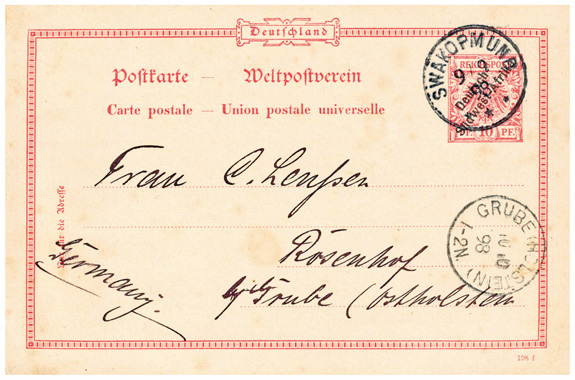 Deutschland
Postkarte — Weltpostverein
Carte postale — Union postale universelle
REICHSPOST
10 PF. 10 PF.
Deutsch-
Südwest-Afrika
SWAKOPMUND
9 9
98
Frau C. Lenssen
Rosenhof
b/ Grube (Ostholstein
Germany.
Nur für die Adresse
GRUBE (HOLSTEIN)
10 10
98
1-2N
108 f